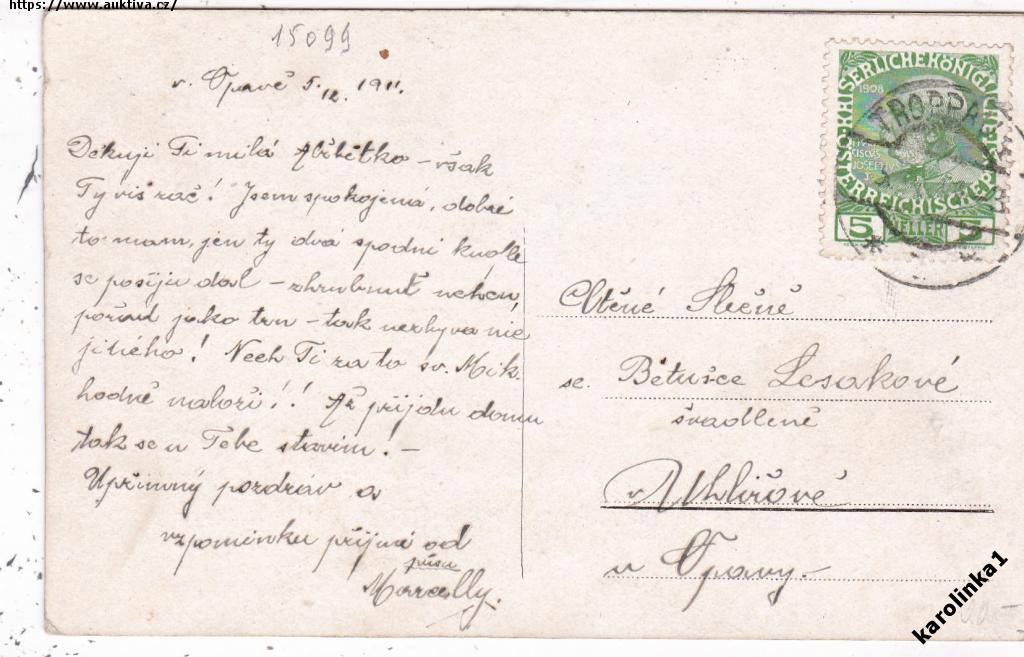 https://www.auktiva.cz/
15099
v. Opavě 5. 12. 1911.
Děkuji Ti milá Alžbětko – však
Ty víš zač! Jsem spokojená, dobré
to mám, jen ty dvá spodní kvalle
se pošiju dál – zhrubnut nehcu,
pořád jako trn – tak nezbyva nic
jiného! Nech Ti za to sv. Mik.
hodně naloží!! Až přijdu domu
tak se u Tebe stavím! –
Upřimný pozdrav a
vzpomínku přijmi od
Marcelly.
KAISERLICHE KÖNIGLICHE
ÖSTERREICHISCHE POST
1908
5 HELLER 5
TROPPAU
Ctěné Slečně
sl. Bětušce Lesákové
švadleně
v Uhlířově
u Opavy. –
karolinka1